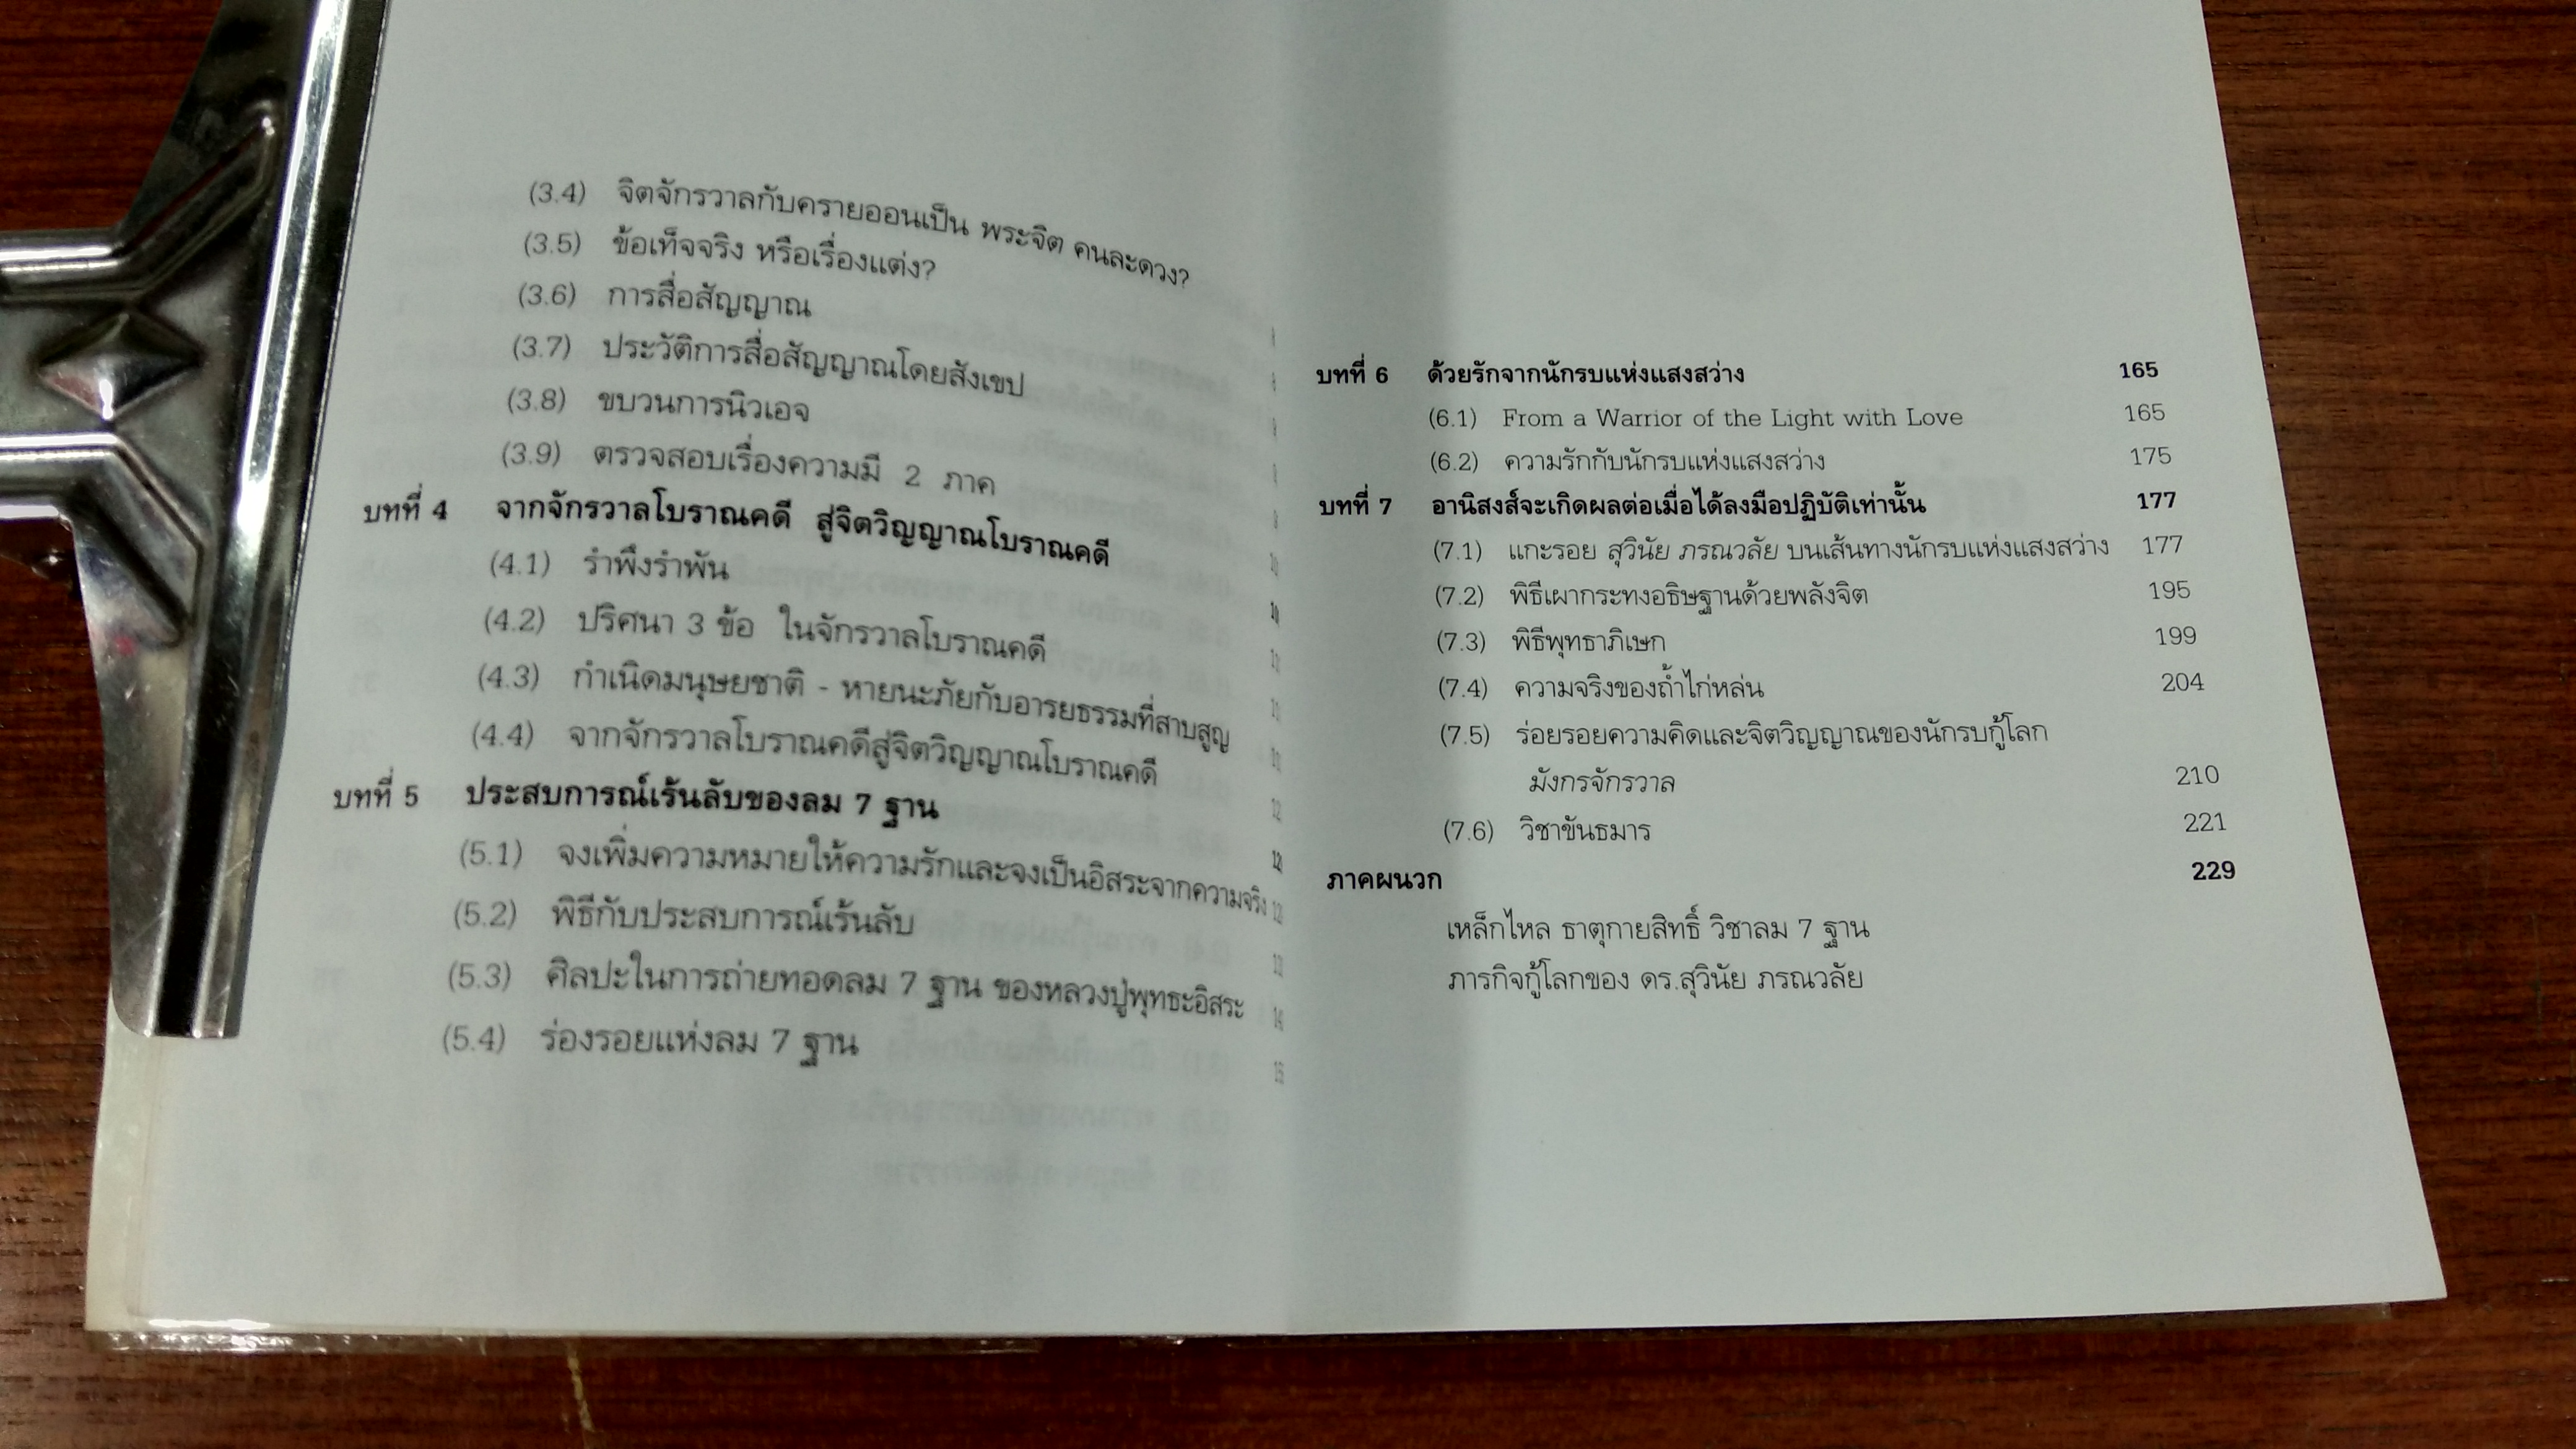 (3.4) จิตจักรวาลกับครายออนเป็น พระจิต คนละดวง?
(3.5) ข้อเท็จจริง หรือเรื่องแต่ง?
(3.6) การสื่อสัญญาณ
(3.7) ประวัติการสื่อสัญญาณโดยสังเขป
(3.8) ขบวนการนิวเอจ
(3.9) ตรวจสอบเรื่องความมี 2 ภาค
บทที่ 4 จากจักรวาลโบราณคดี สู่จิตวิญญาณโบราณคดี
(4.1) รำพึงรำพัน
(4.2) ปริศนา 3 ข้อ ในจักรวาลโบราณคดี
(4.3) กำเนิดมนุษยชาติ - หายนะภัยกับอารยธรรมที่สาบสูญ
(4.4) จากจักรวาลโบราณคดีสู่จิตวิญญาณโบราณคดี
บทที่ 5 ประสบการณ์เร้นลับของลม 7 ฐาน
(5.1) จงเพิ่มความหมายให้ความรักและจงเป็นอิสระจากความจริง
(5.2) พิธีกับประสบการณ์เร้นลับ
(5.3) ศิลปะในการถ่ายทอดลม 7 ฐาน ของหลวงปู่พุทธะอิสระ
(5.4) ร่องรอยแห่งลม 7 ฐาน
บทที่ 6 ด้วยรักจากนักรบแห่งแสงสว่าง 165
(6.1) From a Warrior of the Light with Love 165
(6.2) ความรักกับนักรบแห่งแสงสว่าง 175
บทที่ 7 อานิสงส์จะเกิดผลต่อเมื่อได้ลงมือปฏิบัติเท่านั้น 177
(7.1) แกะรอย สุวินัย ภรณวลัย บนเส้นทางนักรบแห่งแสงสว่าง 177
(7.2) พิธีเผากระทงอธิษฐานด้วยพลังจิต 195
(7.3) พิธีพุทธาภิเษก 199
(7.4) ความจริงของถ้ำไก่หล่น 204
(7.5) ร่อยรอยความคิดและจิตวิญญาณของนักรบกู้โลก
มังกรจักรวาล 210
(7.6) วิชาขันธมาร 221
ภาคผนวก 229
เหล็กไหล ธาตุกายสิทธิ์ วิชาลม 7 ฐาน
ภารกิจกู้โลกของ ดร.สุวินัย ภรณวลัย